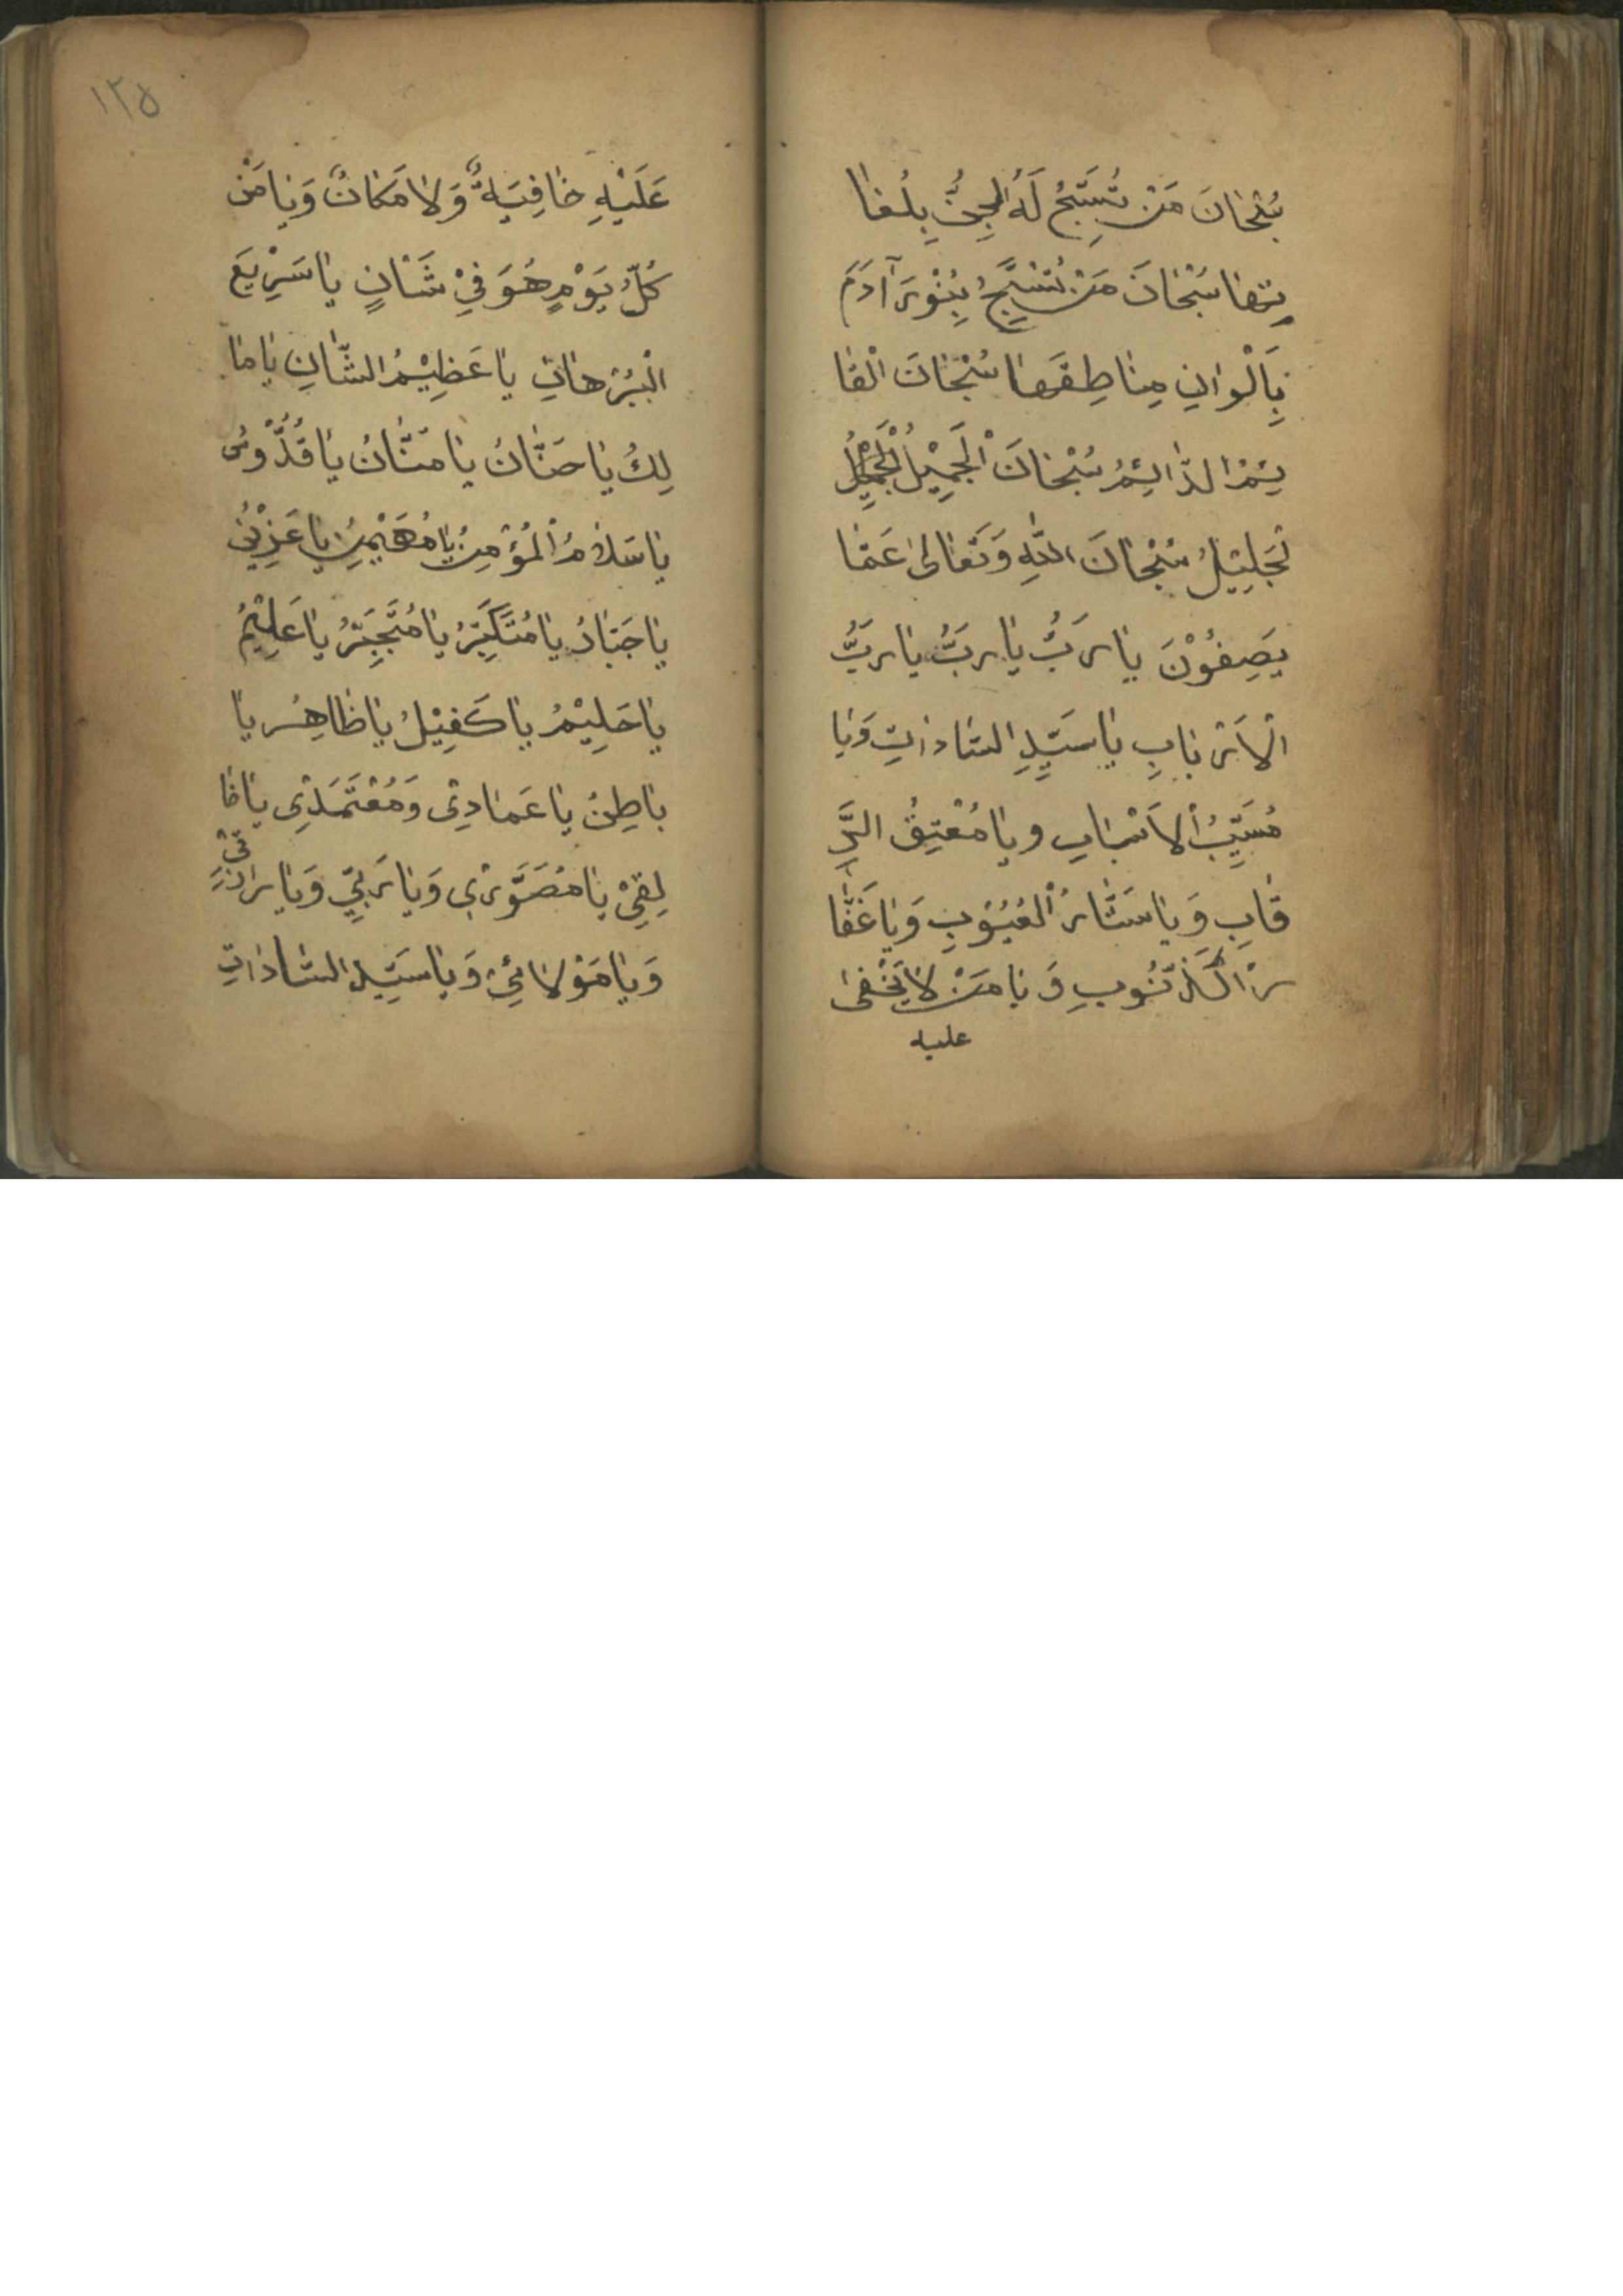 سُبْحَانَ مَنْ تُسَبِّحُ لَهُ الجِنُّ بِلُغَا
تِهَا سُبْحَانَ مَنْ تُسَبِّحُ بَنُوْرَ آدَمَ
بِاَلْوَانِ مِنَاطِقَهَا سُبْحَانَ الْقَا
ئِمُ الدَّائِمُ سُبْحَانَ الْجَمِيْلُ
لْجَلِيْلُ سُبْحَانَ اللهِ وَتَعَالىٰ عَمَّا
يَصِفُوْنَ يا رَبُّ يا رَبُّ يا رَبُّ
الْاَرْبَابِ يا سَيِّدِ السَّادَاتِ وَيَا
مُسَبِّبُ الْاَسْبَابِ ويا مُعْتِقُ الرِّ
قَابِ وَيا سَتَّارُ الْعُيُوْبِ وَيا غَفَّا
رْ الذُّنُوبِ وَ يا مَنْ لا يَخْفىٰ
عليه
١٢٥
عَلَيْهِ خَافِيَةٌ وَلا مَكَانٌ وَيا مَنْ
كُلُّ يَوْمٍ هُوَ فِيْ شَانٍ يا سَرِيْعَ
الْبُرْهَانِ يا عَظِيْمُ الشَّانِ يا مَا
لِكُ يا حَنَّانُ يا مَنَّانُ يا قُدُّوسُ
يا سَلَامُ الْمُؤْمِنُ يا مُهَيْمِنُ يا عَزِيْزُ
يا جَبَّارُ يا مُتَكَبِّرُ يا مُتَجَبِّرُ يا عَلِيْمُ
يا حَلِيْمُ يا كَفِيْلُ يا ظَاهِرُ يا
بَاطِنُ يا عَمَادِيْ وَمُعْتَمَدِيْ يا خَا
لِقِيْ يا مُصَوَّرِيْ وَيا رَبِّيْ وَيا رَازِقِيْ
وَيا مَوْلَائِيْ وَيا سَيِّدِ السَّادَاتِ